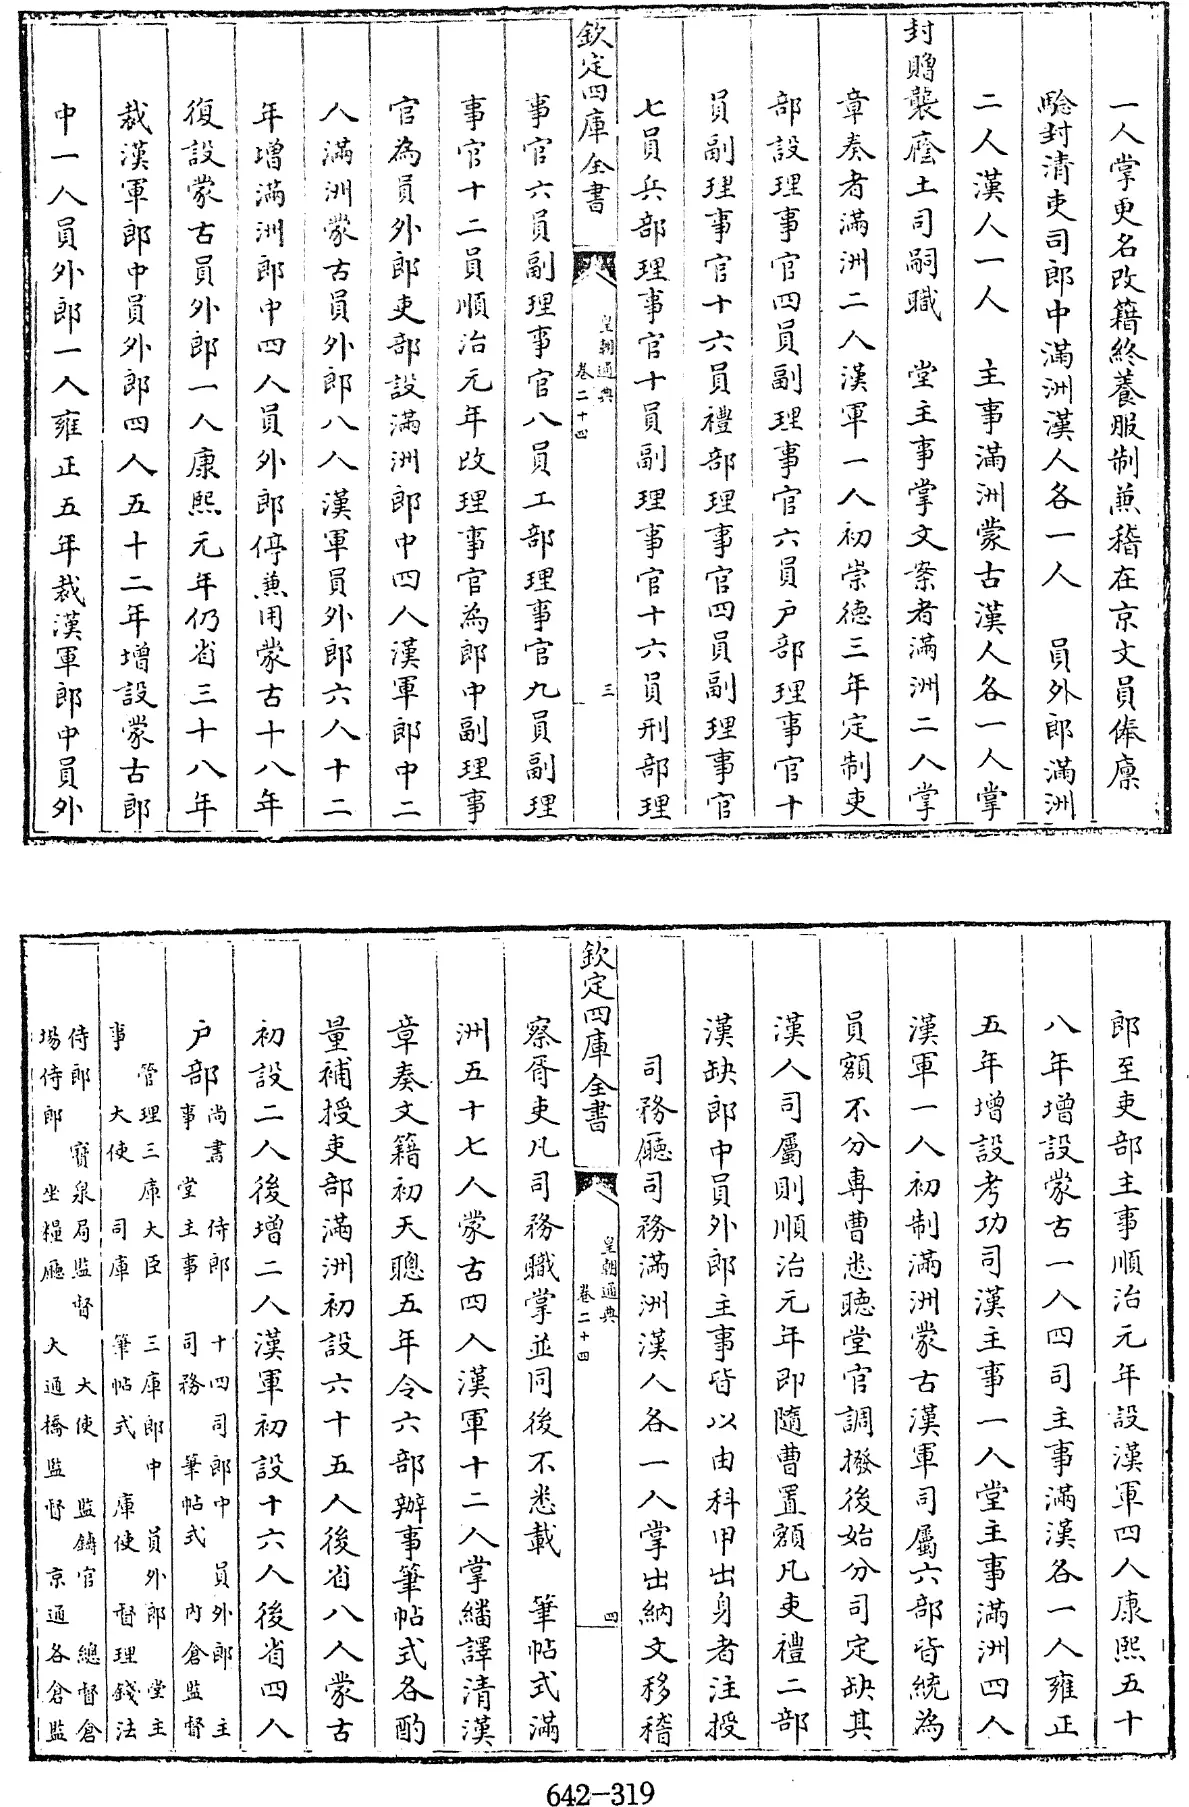 一人掌更名改籍終養服制兼稽在京文員俸廪
驗封清吏司郎中滿洲漢人各一人　員外郎滿洲
二人漢人一人　主事滿洲蒙古漢人各一人掌
封贈襲廕土司嗣職　堂主事掌文案者滿洲二人掌
章奏者滿洲二人漢軍一人初崇德三年定制吏
部設理事官四員副理事官六員户部理事官十
員副理事官十六員禮部理事官四員副理事官
七員兵部理事官十員副理事官十六員刑部理
欽定四庫全書　皇朝通典　卷二十四　三
事官六員副理事官八員工部理事官九員副理
事官十二員順治元年改理事官為郎中副理事
官為員外郎吏部設滿洲郎中四人漢軍郎中二
人滿洲蒙古員外郎八人漢軍員外郎六人十二
年增滿洲郎中四人員外郎停兼用蒙古十八年
復設蒙古員外郎一人康熙元年仍省三十八年
裁漢軍郎中員外郎四人五十二年增設蒙古郎
中一人員外郎一人雍正五年裁漢軍郎中員外
郎至吏部主事順治元年設漢軍四人康熙五十
八年增設蒙古一人四司主事滿漢各一人雍正
五年增設考功司漢主事一人堂主事滿洲四人
漢軍一人初制滿洲蒙古漢軍司屬六部皆統為
員額不分專曹悉聽堂官調撥後始分司定缺其
漢人司屬則順治元年即隨曹置額凡吏禮二部
漢缺郎中員外郎主事皆以由科甲出身者注授
司務廳司務滿洲漢人各一人掌出納文移稽
欽定四庫全書　皇朝通典　卷二十四　四
察胥吏凡司務職掌並同後不悉載　筆帖式滿
洲五十七人蒙古四人漢軍十二人掌繙譯清漢
章奏文籍初天聰五年令六部辦事筆帖式各酌
量補授吏部滿洲初設六十五人後省八人蒙古
初設二人後增二人漢軍初設十六人後省四人
户部尚書　侍郎　十四司郎中　員外郎　主
事　堂主事　司務　筆帖式　內倉監督
管理三庫大臣　三庫郎中　員外郎　堂主
事　大使　司庫　筆帖式　庫使　督理錢法
侍郎　寶泉局監督　大使　監鑄官　總督倉
場侍郎　坐糧廳　大通橋監督　京通各倉監
642-319